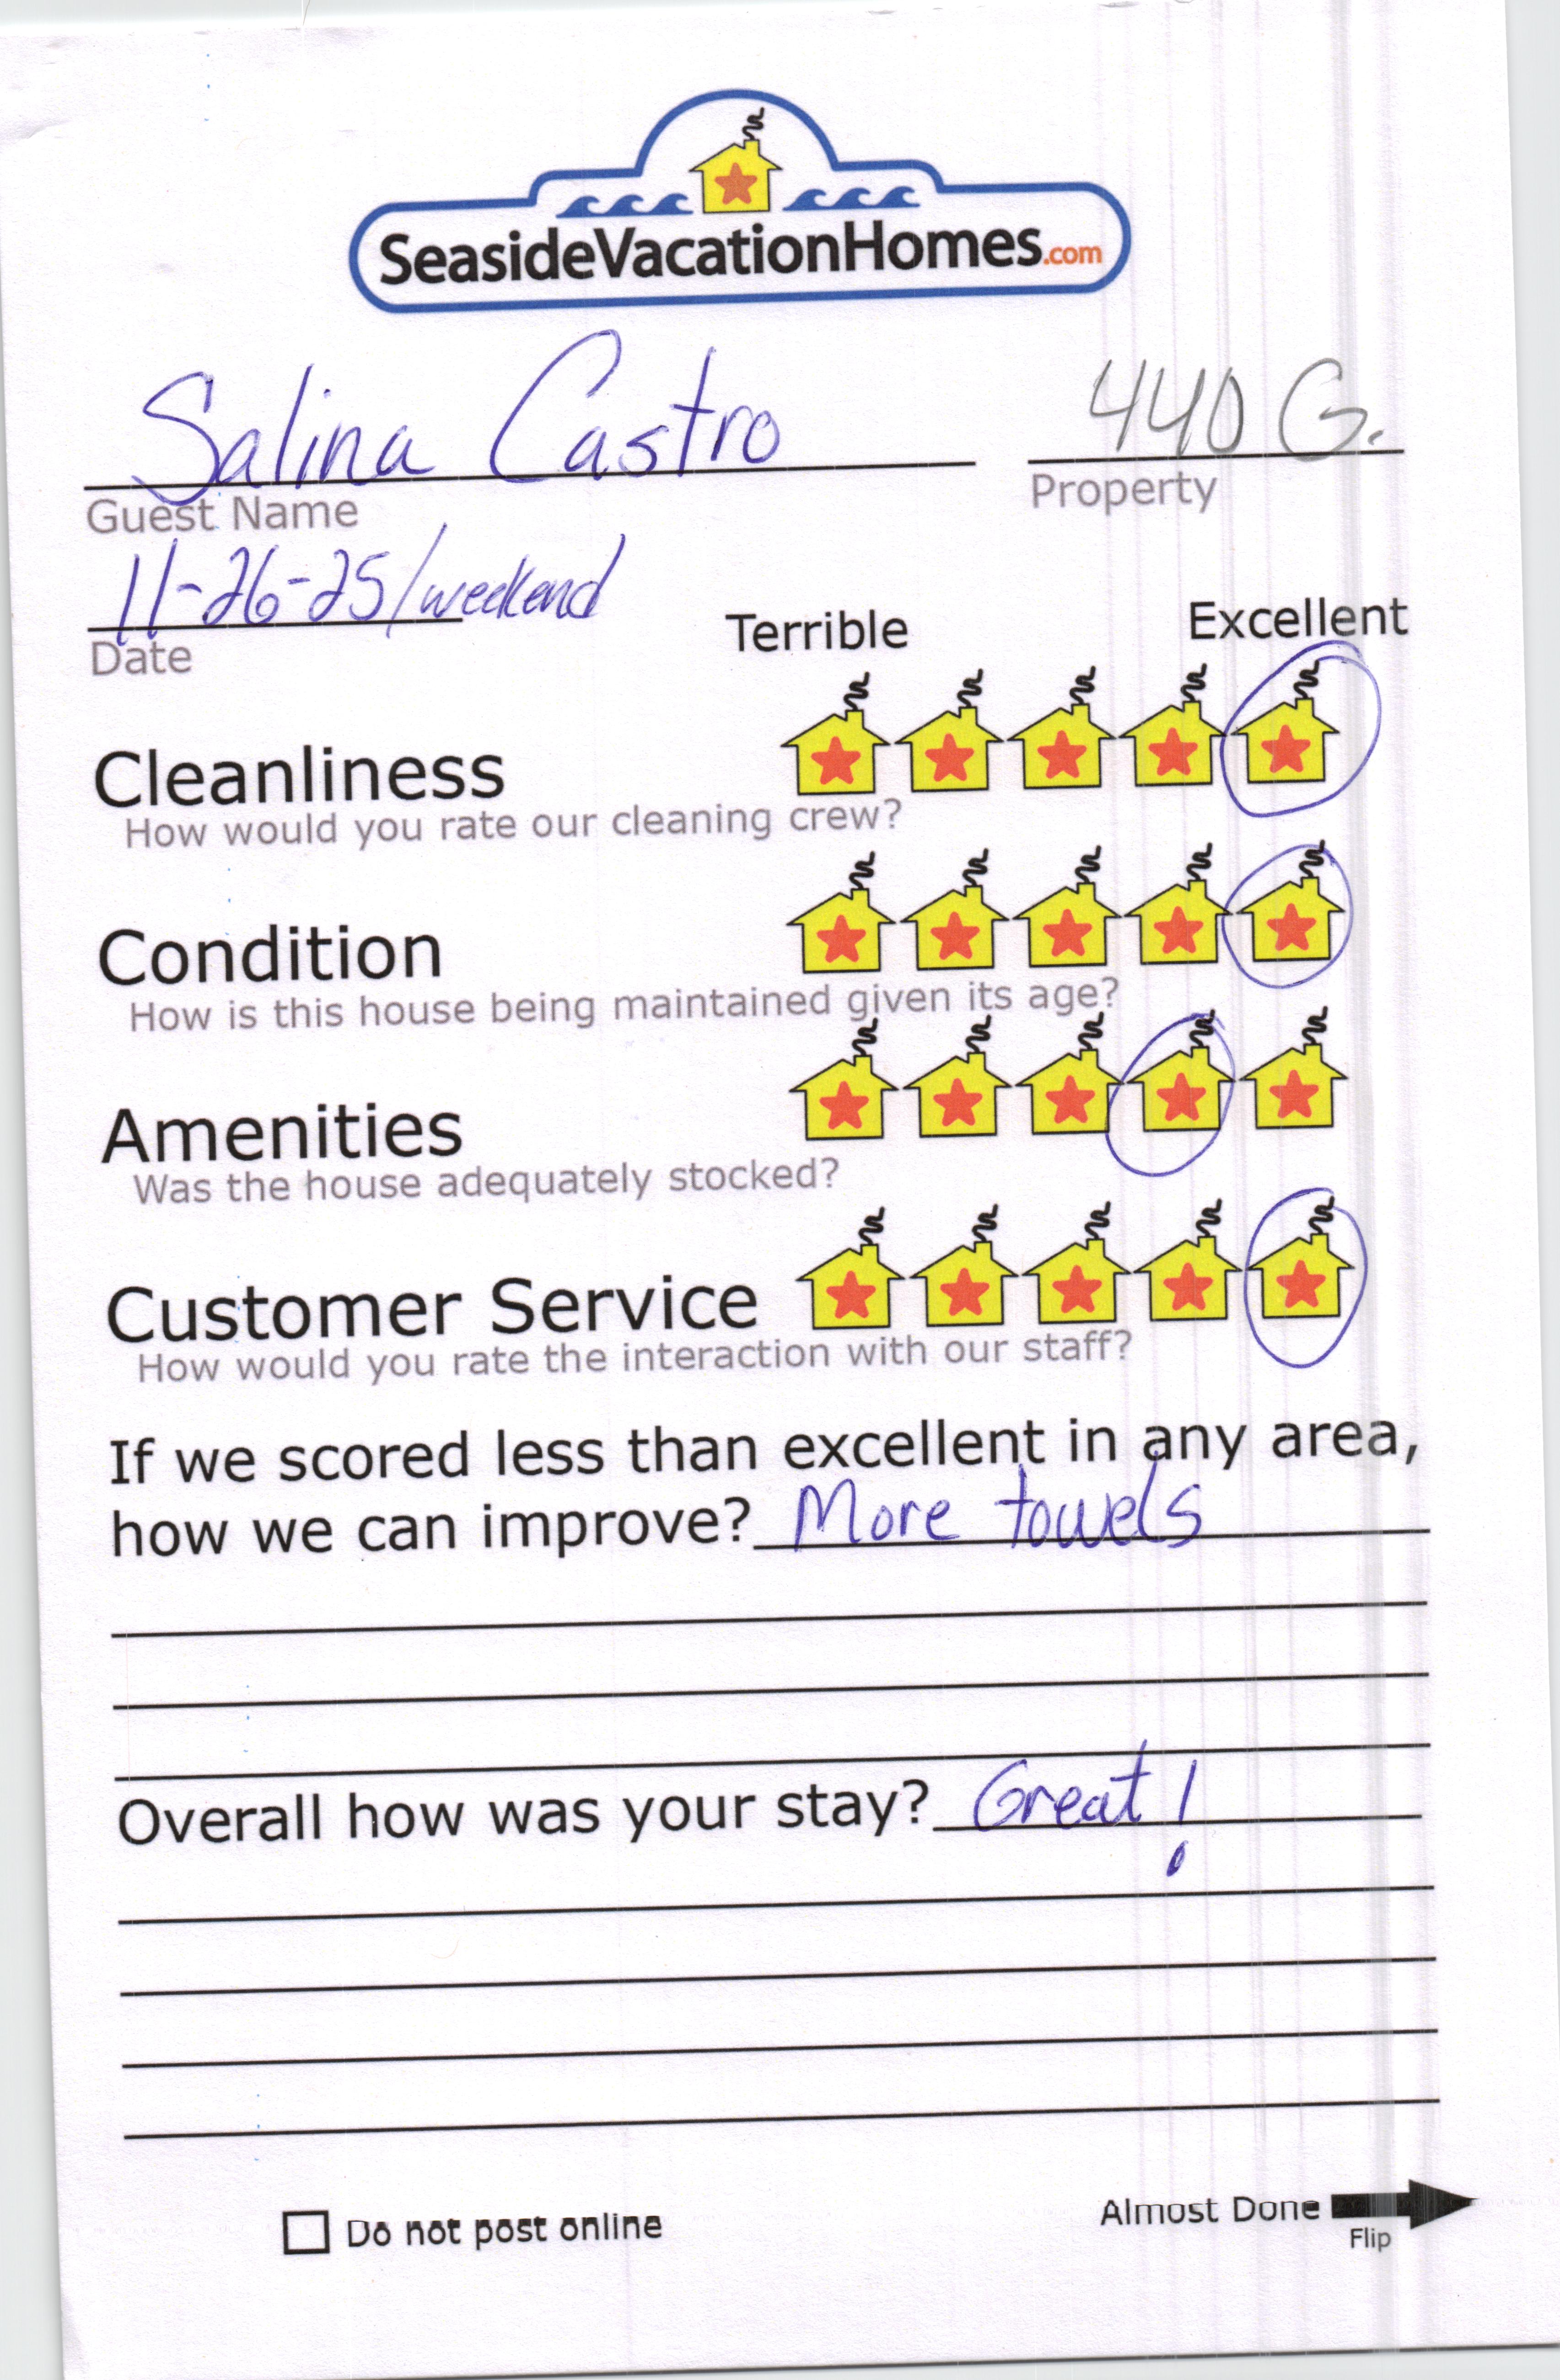 SeasideVacationHomes.com
Salina Castro 440 G.
Guest Name Property
11-26-25/weekend
Date
Terrible Excellent
Cleanliness
How would you rate our cleaning crew?
Condition
How is this house being maintained given its age?
Amenities
Was the house adequately stocked?
Customer Service
How would you rate the interaction with our staff?
If we scored less than excellent in any area,
how we can improve? More towels
Overall how was your stay? Great!
Do not post online Almost Done
Flip